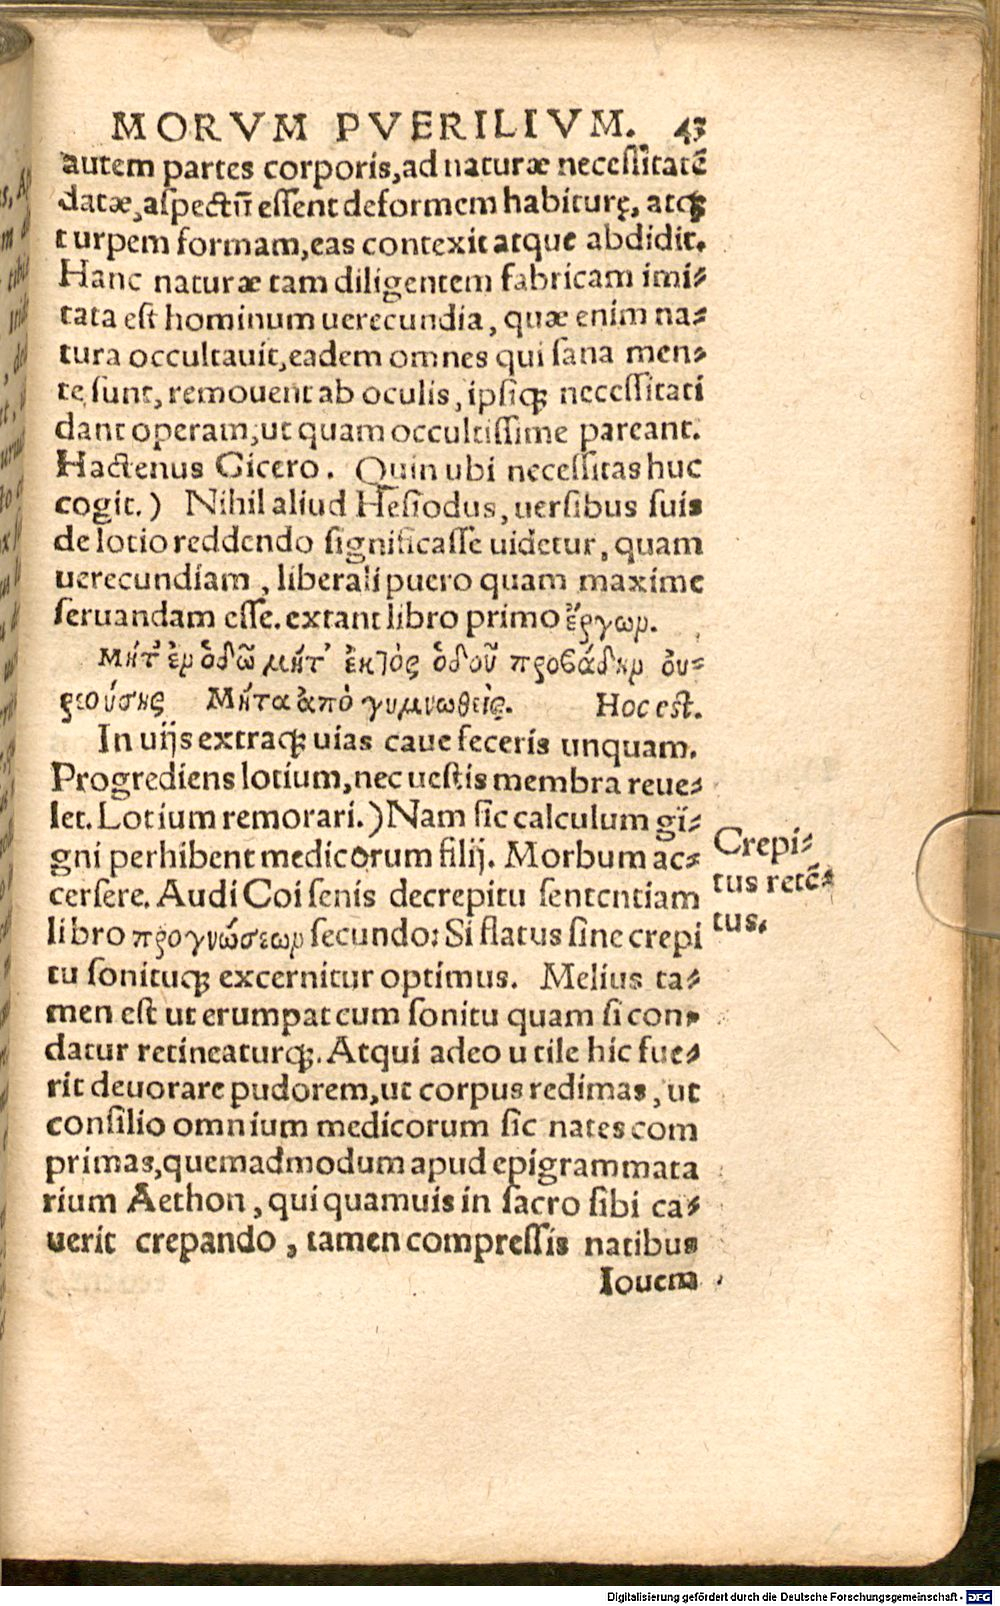 MORVM PVERILIVM. 43
autem partes corporis,ad naturæ necessitatē
datæ,aspectū essent deformem habiturę, atqꝫ
turpem formam,eas contexit atque abdidit.
Hanc naturæ tam diligentem fabricam imi-
tata est hominum uerecundia, quæ enim na-
tura occultauit,eadem omnes qui sana men-
te sunt, remouent ab oculis, ipsiqꝫ necessitati
dant operam,ut quam occultissime pareant.
Hactenus Cicero. Quin ubi necessitas huc
cogit.) Nihil aliud Hesiodus, uersibus suis
de lotio reddendo significasse uidetur, quam
uerecundiam, liberali puero quam maxime
seruandam esse. extant libro primo ἔργων.
Μήτ' ἐν ὁδῷ μήτ' ἐκτὸς ὁδοῦ προβάδην οὐ-
ρεούσης Μήτα ἀπὸ γυμνωθεὶς. Hoc est.
In uijs extraqꝫ uias caue feceris unquam.
Progrediens lotium,nec uestis membra reue-
let. Lotium remorari.) Nam sic calculum gi-
gni perhibent medicorum filij. Morbum ac-
cersere. Audi Coi senis decrepitu sententiam
libro προγνώσεων secundo: Si flatus sine crepi
tu sonituqꝫ excernitur optimus. Melius ta-
men est ut erumpat cum sonitu quam si con-
datur retineaturqꝫ. Atqui adeo utile hic fue-
rit deuorare pudorem,ut corpus redimas, ut
consilio omnium medicorum sic nates com
primas,quemadmodum apud epigrammata
rium Aethon, qui quamuis in sacro sibi ca-
uerit crepando, tamen compressis natibus
Iouem
Crepi-
tus retē-
tus.
Digitalisierung gefördert durch die Deutsche Forschungsgemeinschaft - DFG